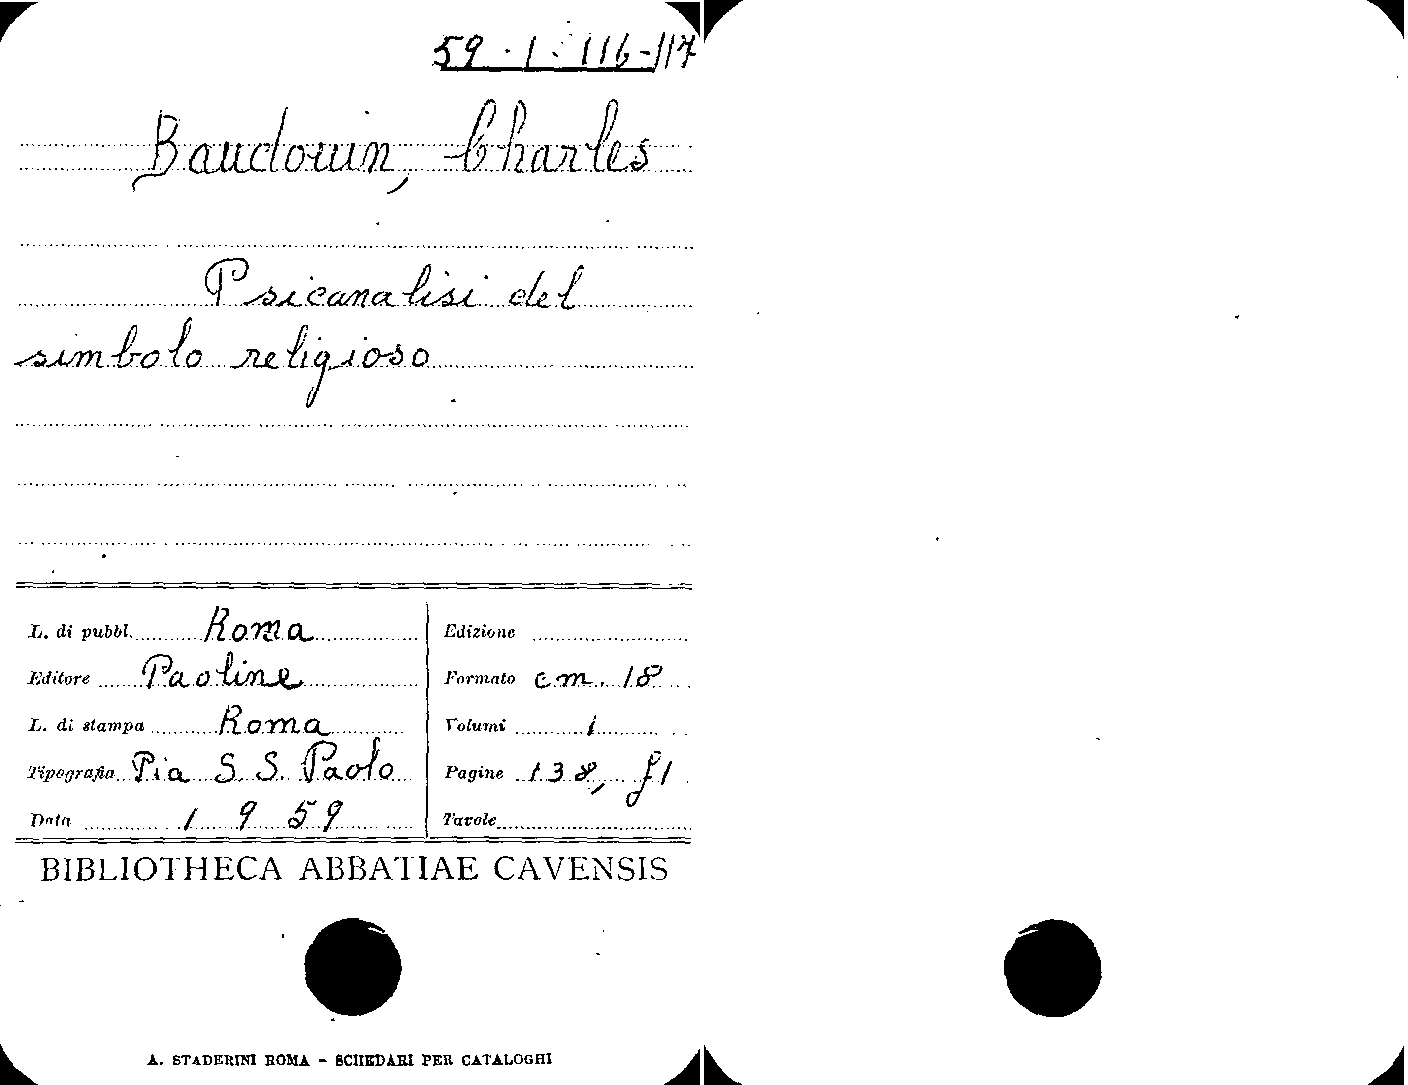 59 · 1 · 116-117
Baudouin, Charles
Psicanalisi del
simbolo religioso
L. di pubbl. Roma
Editore Paoline
L. di stampa Roma
Tipografia Pia S. S. Paolo
Data 1959
Edizione
Formato cm. 18
Volumi 1
Pagine 138, f1
Tavole
BIBLIOTHECA ABBATIAE CAVENSIS
A. STADERINI ROMA - SCHEDARI PER CATALOGHI